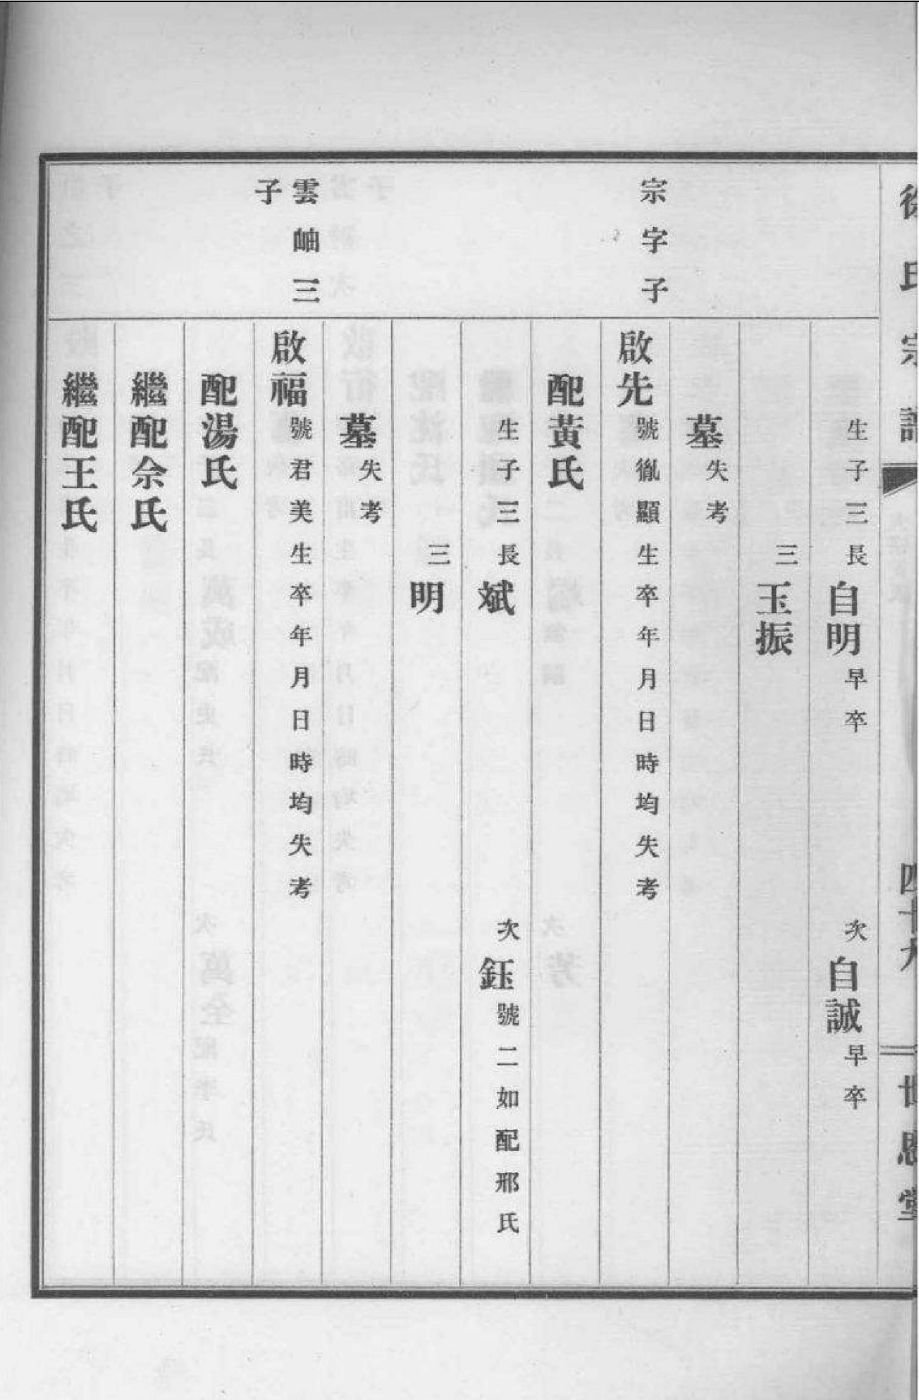 徐氏宗譜
四十九
世恩堂
生子三長自明早卒 次自誠早卒
三玉振
墓失考
宗字子
啟先號胤顯生卒年月日時均失考
配黃氏
生子三長斌 次鈺號二如配邢氏
三明
墓失考
雲岫三
子
啟福號君美生卒年月日時均失考
配湯氏
繼配佘氏
繼配王氏